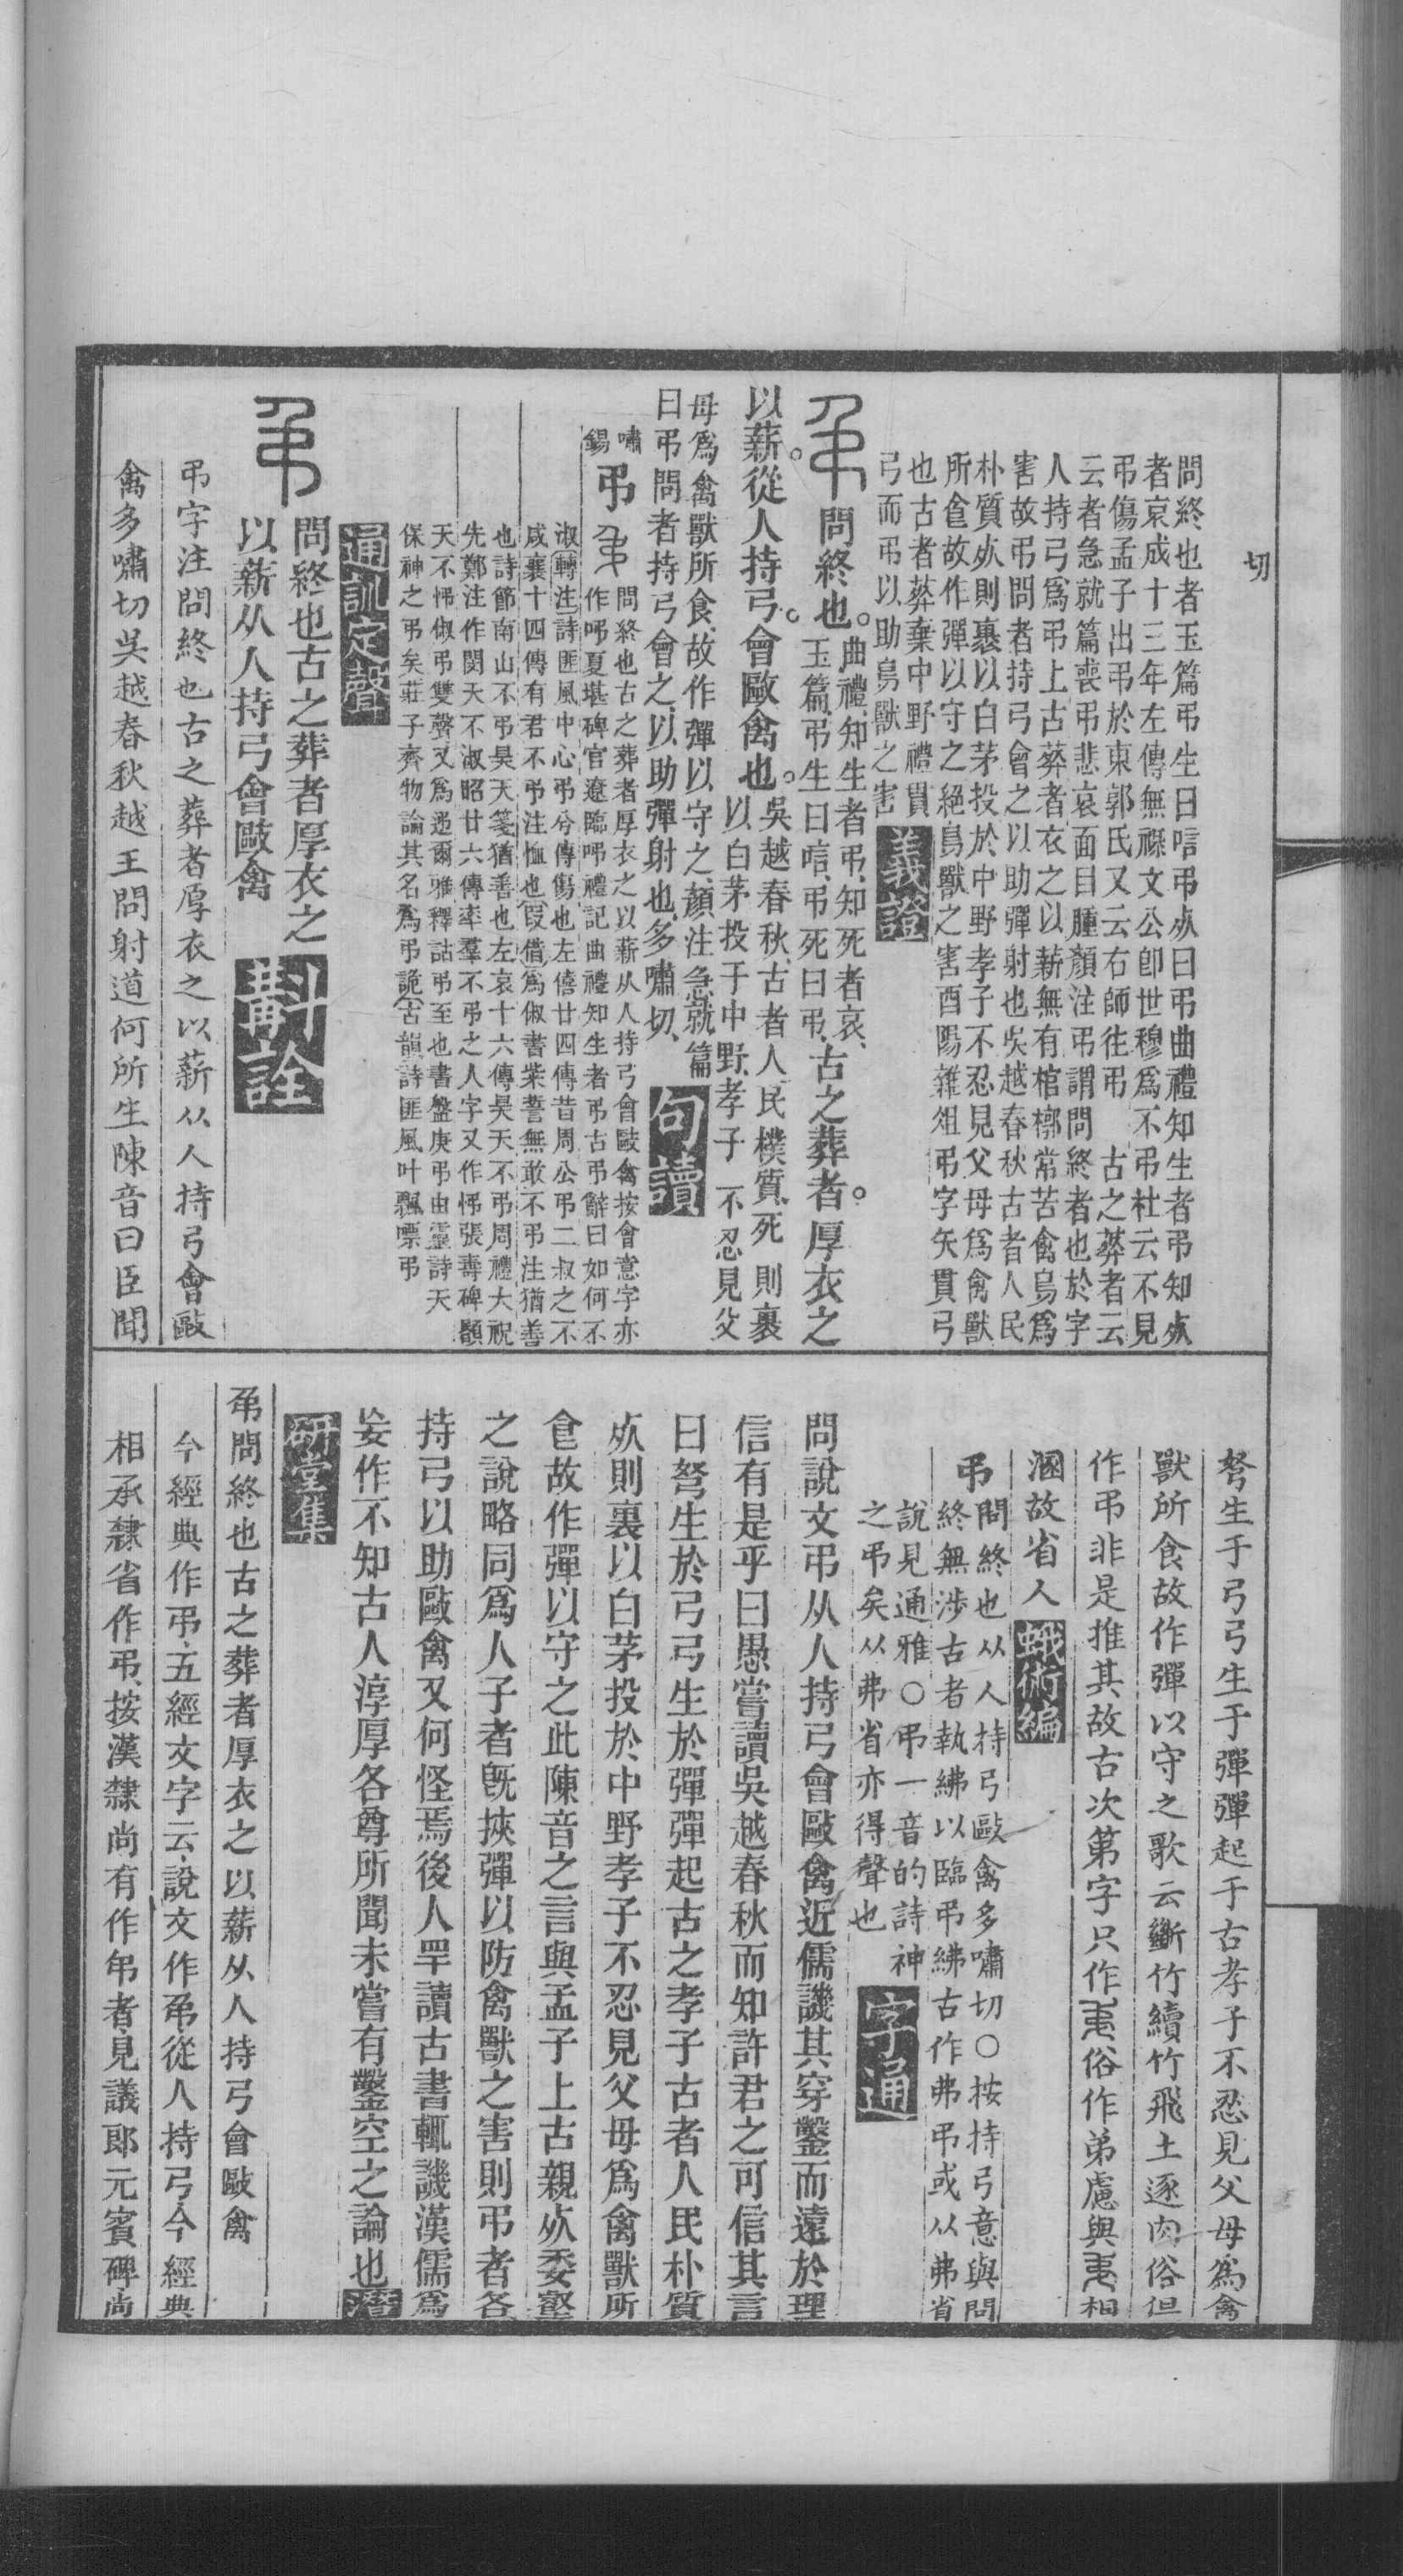 切
問終也者玉篇弔生曰唁弔㱙曰弔曲禮知生者弔知㱙
者哀成十三年左傳無祿文公卽世穆爲不弔杜云不見
弔傷孟子出弔於東郭氏又云右師往弔　古之葬者云
云者急就篇喪弔悲哀面目腫顏注弔謂問終者也於字
人持弓爲弔上古葬者衣之以薪無有棺槨常苦禽鳥爲
害故弔問者持弓會之以助彈射也吳越春秋古者人民
朴質㱙則裹以白茅投於中野孝子不忍見父母爲禽獸
所倉故作彈以守之絕鳥獸之害酉陽雜俎弔字矢貫弓
也古者葬棄中野禮貫
弓而弔以助鳥獸之害
義證
問終也。
曲禮、知生者弔、知死者哀、
玉篇、弔生曰唁、弔死曰弔、
古之葬者。厚衣之
以薪。從人持弓。會敺禽也。
吳越春秋、古者人民樸質、死則裹
以白茅投于中野、孝子不忍見父
母爲禽獸所食、故作彈以守之、顏注急就篇
曰弔問者持弓會之、以助彈射也、多嘯切、
句讀
嘯
錫
弔
問終也古之葬者厚衣之以薪从人持弓會敺禽按會意字亦
作吊夏堪碑官遼臨吊禮記曲禮知生者弔古弔辭曰如何不
淑轉注詩匪風中心弔兮傳傷也左僖廿四傳昔周公弔二叔之不
咸襄十四傳有君不弔注恤也叚借爲俶書柴誓無敢不弔注猶善
也詩節南山不弔昊天箋猶善也左哀十六傳昊天不弔周禮大祝
先鄭注作閔天不淑昭廿六傳率羣不弔之人字又作怫張壽碑顥
天不怫俶弔雙聲又爲迵爾雅釋詁弔至也書盤庚弔由靈詩天
保神之弔矣莊子齊物論其名爲弔詭古韻詩匪風叶飄嘌弔
通訓定聲
問終也古之葬者厚衣之
以薪从人持弓會敺禽
斠詮
弔字注問終也古之葬者厚衣之以薪从人持弓會敺
禽多嘯切吳越春秋越王問射道何所生陳音曰臣聞
弩生于弓弓生于彈彈起于古孝子不忍見父母爲禽
獸所食故作彈以守之歌云斷竹續竹飛土逐肉俗但
作弔非是推其故古次第字只作俗作弟慮與相
溷故省人
蛾術編
弔
問終也从人持弓敺禽多嘯切○按持弓意與問
終無涉古者執紼以臨弔紼古作弗弔或从弗省
說見通雅○弔一音的詩神
之弔矣从弗省亦得聲也
字通
問說文弔从人持弓會敺禽近儒譏其穿鑿而遠於理
信有是乎曰愚嘗讀吳越春秋而知許君之可信其言
曰弩生於弓弓生於彈彈起古之孝子古者人民朴質
㱙則裏以白茅投於中野孝子不忍見父母爲禽獸所
倉故作彈以守之此陳音之言與孟子上古親㱙委壑
之說略同爲人子者旣挾彈以防禽獸之害則弔者各
持弓以助敺禽又何怪焉後人罕讀古書輒譏漢儒爲
妄作不知古人淳厚各尊所聞未嘗有鑿空之論也
研堂集
弔問終也古之葬者厚衣之以薪从人持弓會敺禽
今經典作弔、五經文字云、說文作弔從人持弓今經典
相承隸省作弔、按漢隸尚有作帋者、見議郎元賓碑尚